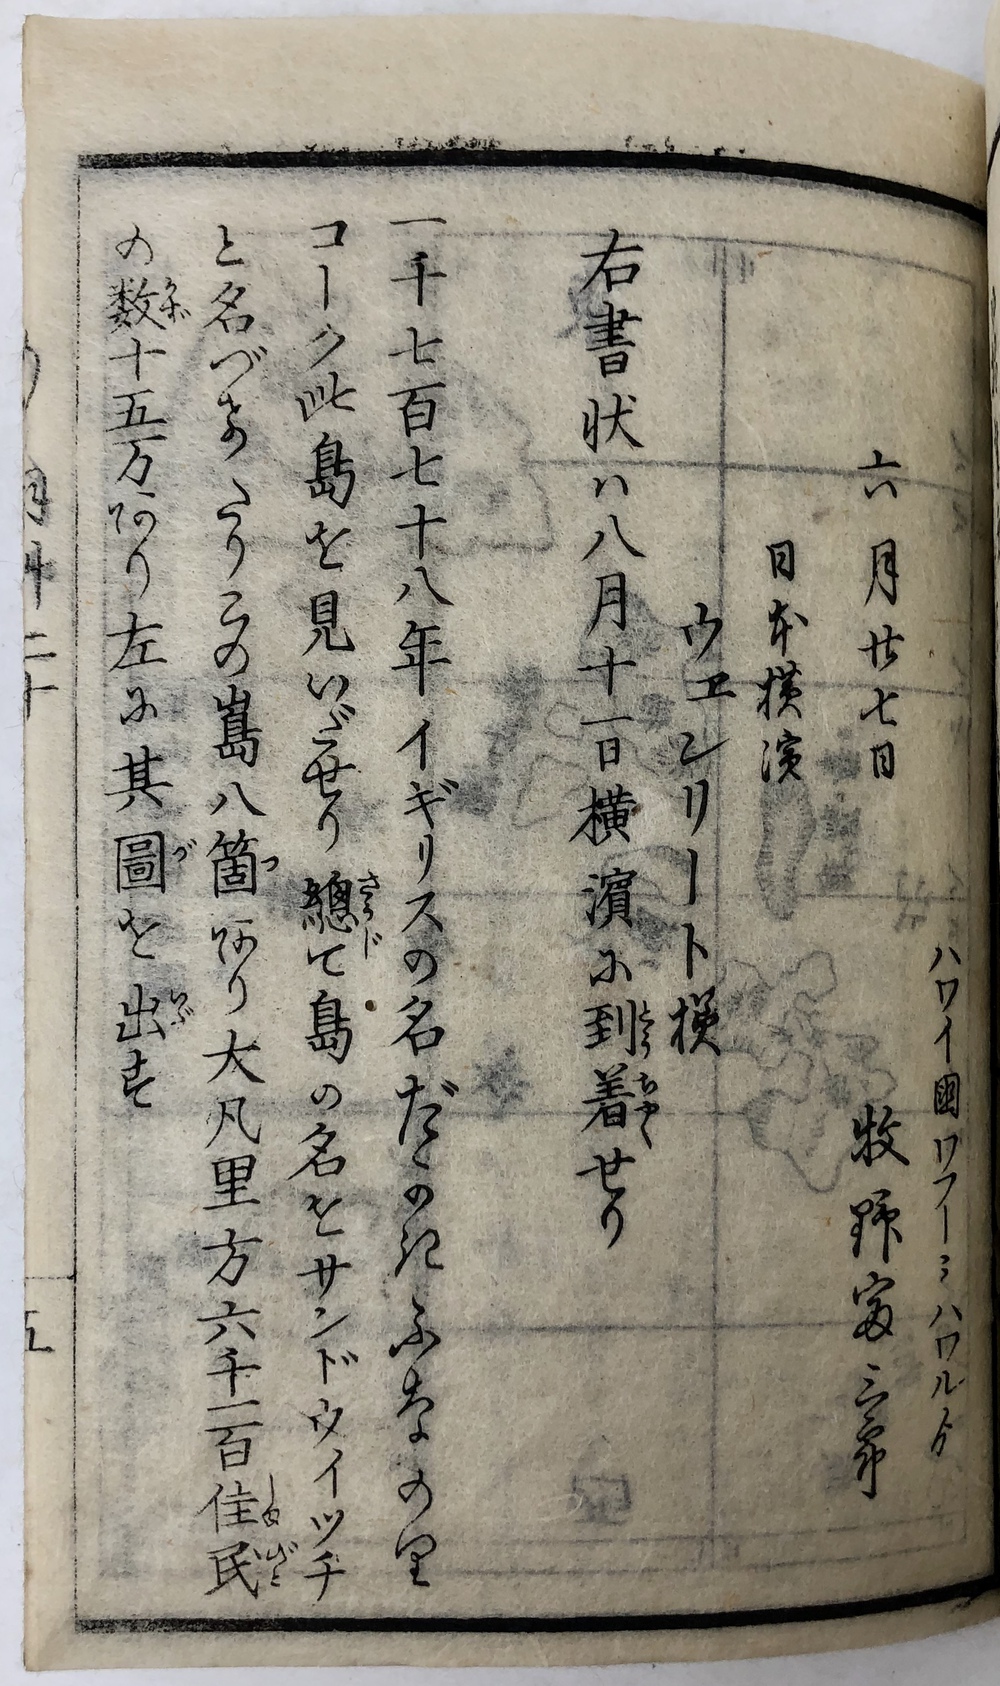 ハワイ國ワフーミハワルゟ
六月廿七日　牧野富三郎
日本横濱
ウエンリート様
右書状ハ八月十一日横濱に到着せり
とうちやく
一千七百七十八年イギリスの名だゝのきふなのり
コーク此島を見いだせり總て島の名をサンドウイツチ
と名づけたりこの嶌八箇あり大凡里方六千一百住民
つ
の数十五万あり左に其圖を出す
かず
づ
いづ
五